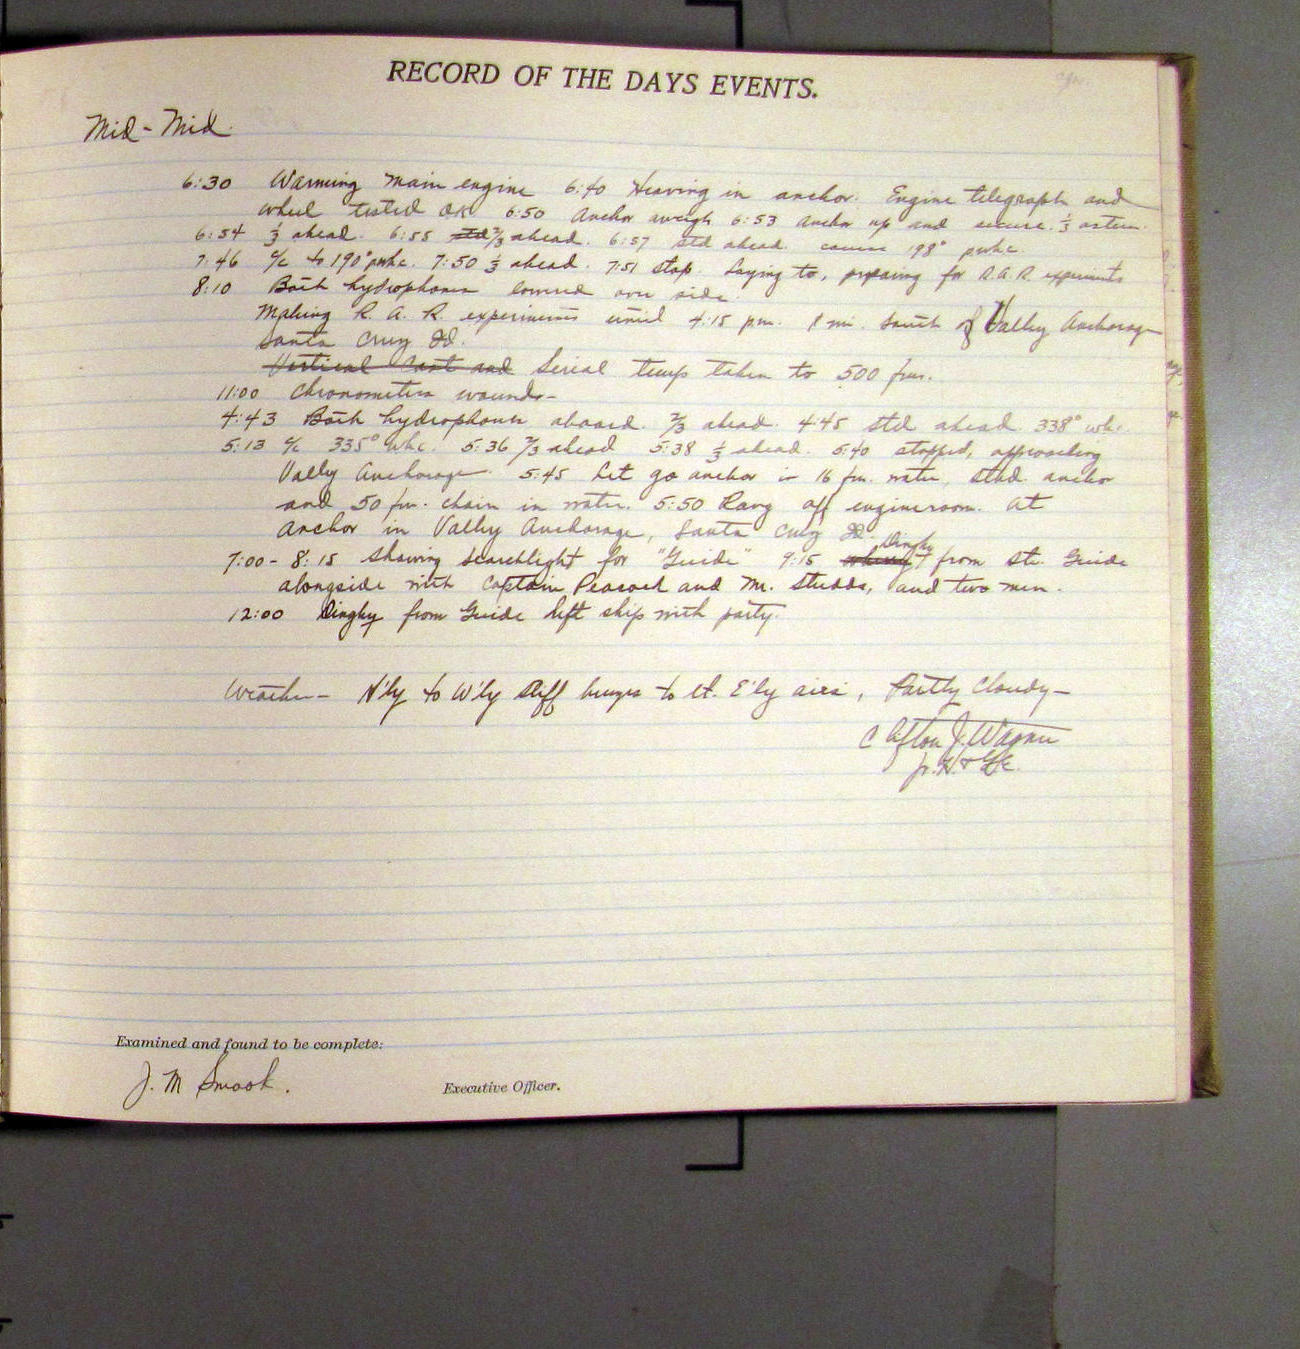 RECORD OF THE DAYS EVENTS.
Mid - Mid
6:30 Warming main engine 6:40 Heaving in anchor. Engine telegraph and
wheel tested OK 6:50 Anchor aweigh 6:53 Anchor up and secure. 1/3 astern.
6:54 1/3 ahead. 6:55 Std 2/3 ahead. 6:57 std ahead. course 198° pwhc.
7:46 c/c to 190° pwhc. 7:50 1/3 ahead. 7:51 stop. Laying to, preparing for R.A.R. experiments
8:10 Both hydrophones lowered over side.
Making R. A. R. experiments until 4:15 pm. 1 mi. south of Valley Anchorage
Santa Cruz Id.
Vertical Cast and Serial temp taken to 500 fms.
11:00 Chronometers wound-
4:43 Both hydrophones aboard. 2/3 ahead. 4:45 std ahead 338° whc.
5:13 c/c 335° whc. 5:36 2/3 ahead 5:38 1/3 ahead. 5:40 stopped, approaching
Vally Anchorage 5:45 Let go anchor in 16 fm. water, stbd. anchor
and 50 fm. chain in water. 5:50 Rang off engineroom. At
anchor in Valley Anchorage, Santa Cruz Id.
Dinghy
7:00 - 8:15 showing searchlight for "Guide" 9:15 wherry from Str. Guide
alongside with Captain Peacock and Mr. Studds, and two men.
12:00 Dinghy from Guide left ship with party.
Weather - N'ly to W'ly stiff breezes to lt. E'ly airs, Partly Cloudy -
Clifton J. Wagner
jr. H. & G.E.
Examined and found to be complete:
J. M Smook.
Executive Officer.